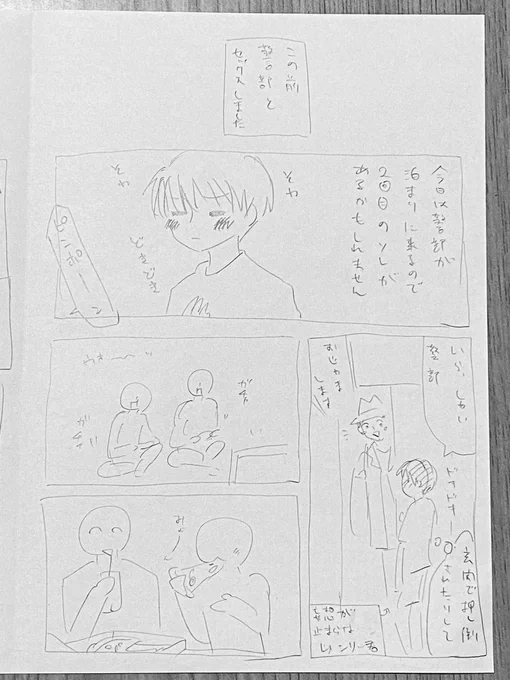 この前
警部と
セックスしました
今日は警部が
泊まりに来るので
2回目のソレが
あるかもしれません
そわ
そわ
どきどき
ピンポーン
いらっしゃい
警部
おじゃまします
ドキドキー
玄関で押し倒
されたりして
妄想が
止まらな
い
ンリー君
ガチャ
ガチャ